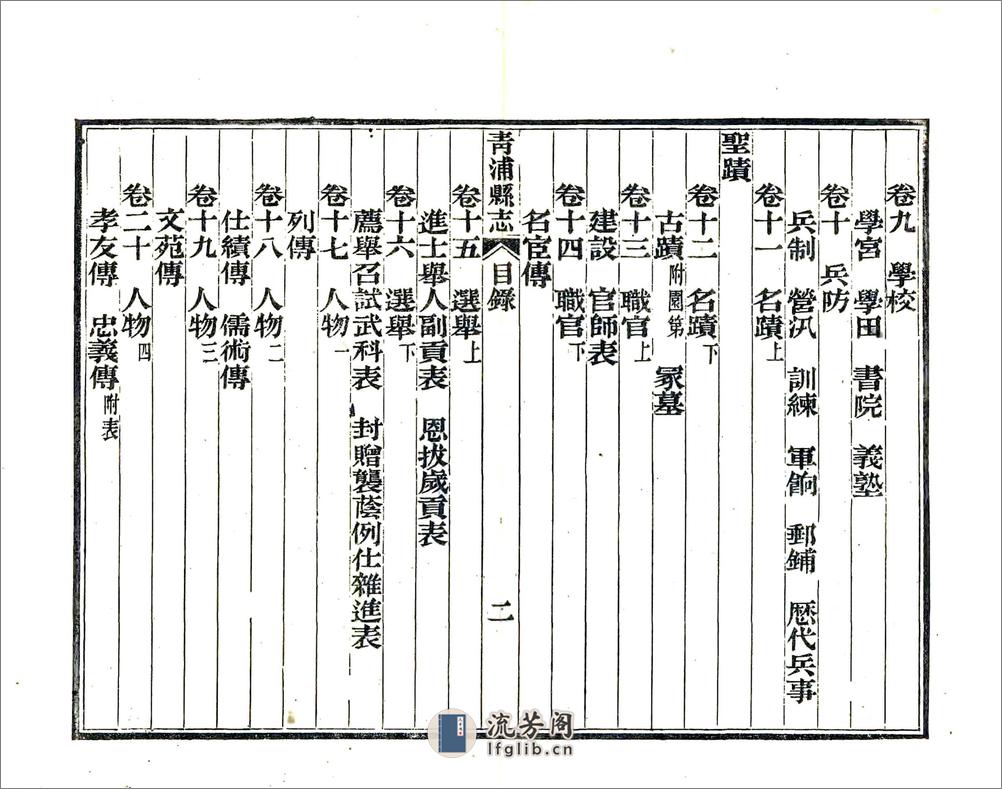 卷九　學校
學宮　學田　書院　義塾
卷十　兵防
兵制　營汛　訓練　軍餉　郵鋪　歷代兵事
卷十一　名蹟上
聖蹟
卷十二　名蹟下
古蹟附園第　冢墓
卷十三　職官上
建設　官師表
卷十四　職官下
名宦傳
青浦縣志　目錄　二
卷十五　選舉上
進士舉人副貢表　恩拔歲貢表
卷十六　選舉下
薦舉召試武科表　封贈襲蔭例仕雜進表
卷十七　人物一
列傳
卷十八　人物二
仕績傳　儒術傳
卷十九　人物三
文苑傳
卷二十　人物四
孝友傳　忠義傳附表
流芳阁
lfglib.cn